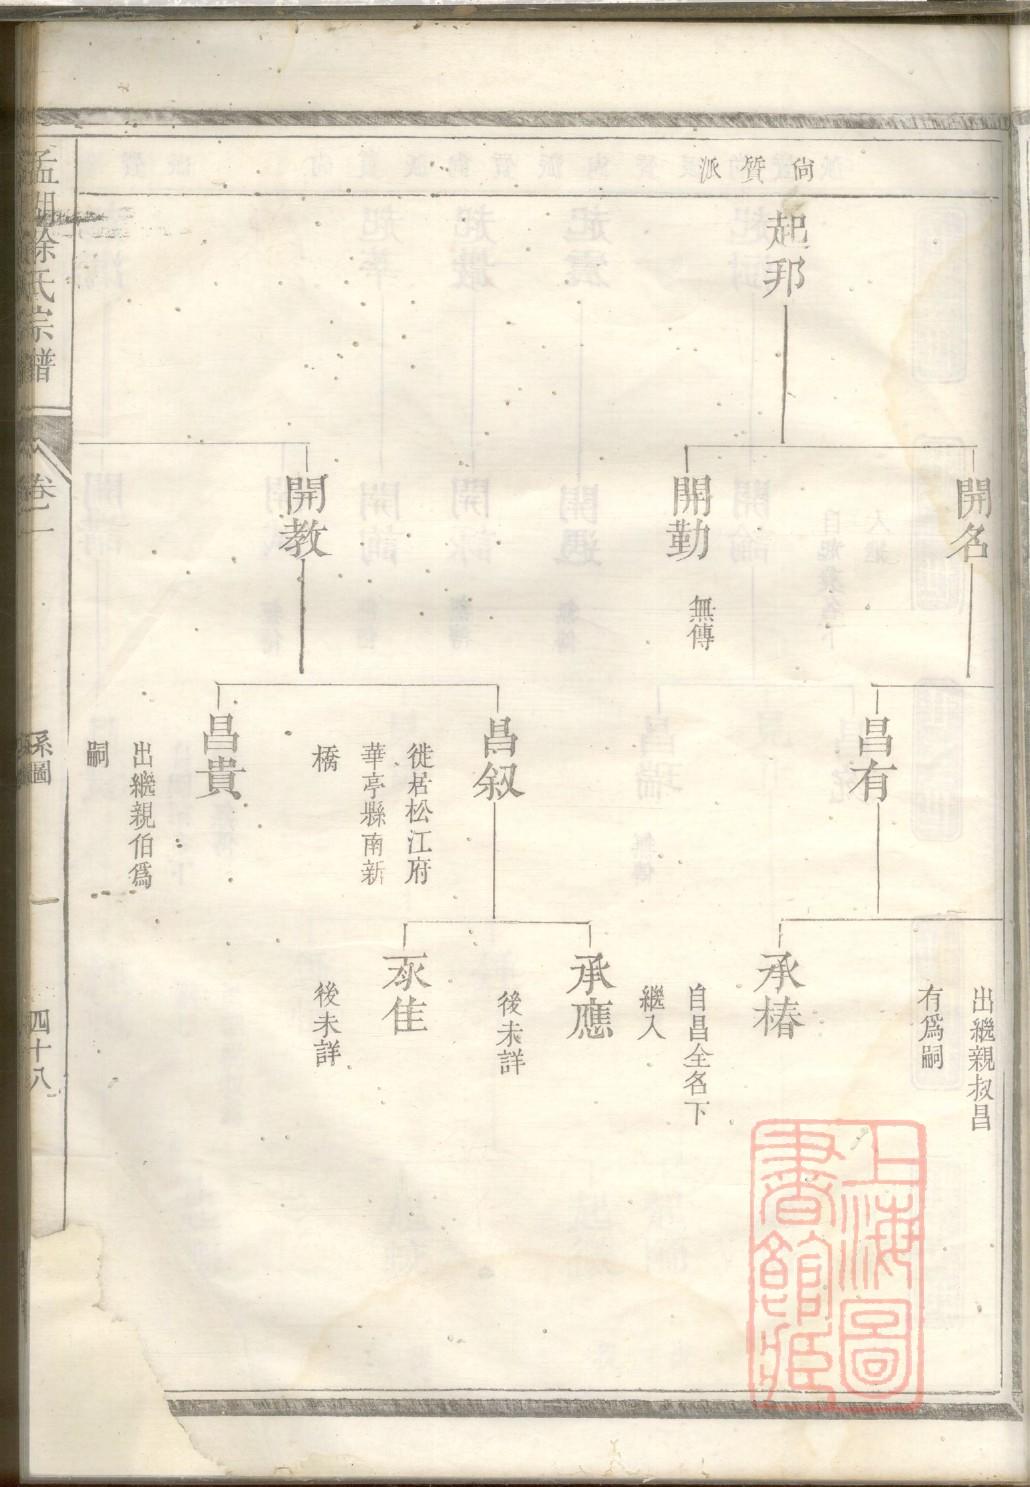 尙贊派
起邦
開名
開勤
無傳
開教
昌有
昌叙
徙居松江府
華亭縣南新
橋
昌貴
出繼親伯爲
嗣
出繼親叔昌
有爲嗣
承椿
自昌全名下
繼入
承應
後未詳
承佳
後未詳
徐氏宗譜
卷二
系圖
一
四十八
上海圖
書館藏